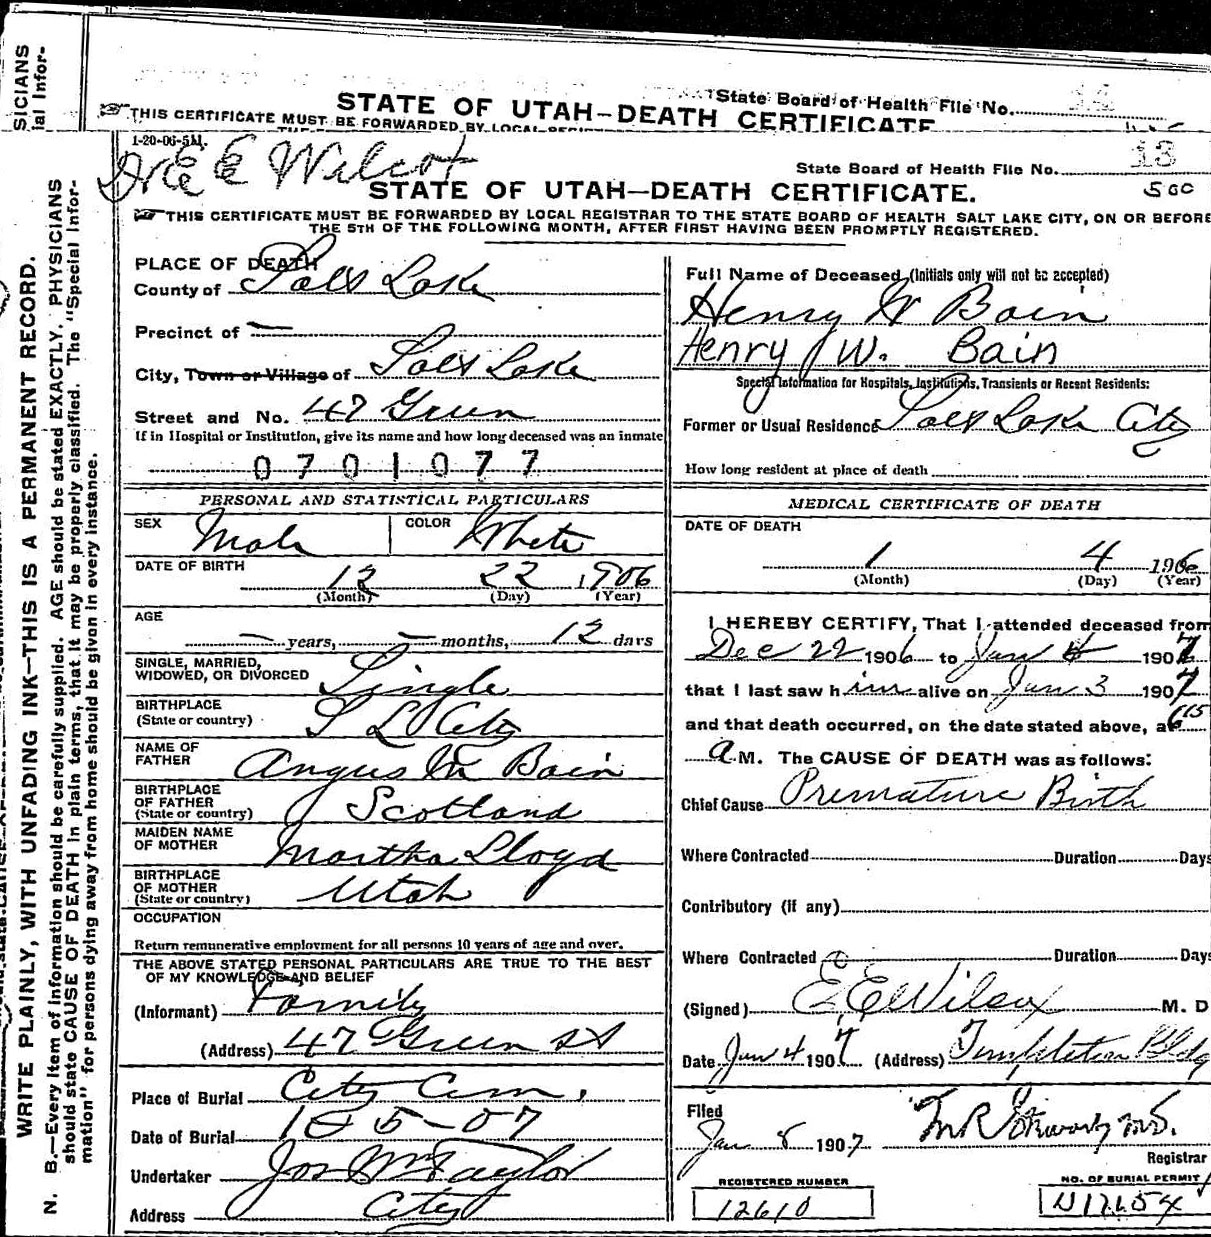 SICIANS
ial Infor-
State Board of Health File No.
STATE OF UTAH-DEATH CERTIFICATE
THIS CERTIFICATE MUST BE FORWARDED BY LOCAL
1-20-06-5M.
Dr E E Wilcox
State Board of Health File No. 13
500
STATE OF UTAH—DEATH CERTIFICATE.
THIS CERTIFICATE MUST BE FORWARDED BY LOCAL REGISTRAR TO THE STATE BOARD OF HEALTH SALT LAKE CITY, ON OR BEFORE
THE 5TH OF THE FOLLOWING MONTH, AFTER FIRST HAVING BEEN PROMPTLY REGISTERED.
WRITE PLAINLY, WITH UNFADING INK—THIS IS A PERMANENT RECORD.
N. B.—Every item of information should be carefully supplied. AGE should be stated EXACTLY. PHYSICIANS
should state CAUSE OF DEATH in plain terms, that it may be properly classified. The "Special Infor-
mation" for persons dying away from home should be given in every instance.
PLACE OF DEATH
County of Salt Lake
Precinct of —
City, Town or Village of Salt Lake
Street and No. 47 Green
If in Hospital or Institution, give its name and how long deceased was an inmate
0701077
PERSONAL AND STATISTICAL PARTICULARS
SEX Male COLOR White
DATE OF BIRTH
12 22 1906
(Month) (Day) (Year)
AGE
— years, — months, 12 days
SINGLE, MARRIED,
WIDOWED, OR DIVORCED Single
BIRTHPLACE
(State or country) S L City
NAME OF
FATHER Angus M Bain
BIRTHPLACE
OF FATHER
(State or country) Scotland
MAIDEN NAME
OF MOTHER Martha Lloyd
BIRTHPLACE
OF MOTHER
(State or country) Utah
OCCUPATION
Return remunerative employment for all persons 10 years of age and over.
THE ABOVE STATED PERSONAL PARTICULARS ARE TRUE TO THE BEST
OF MY KNOWLEDGE AND BELIEF
(Informant) Family
(Address) 47 Green St
Place of Burial City Cem.
Date of Burial 1-5-07
Undertaker Jos Wm Taylor
Address City
Full Name of Deceased (Initials only will not be accepted)
Henry W Bain
Henry W. Bain
Special Information for Hospitals, Institutions, Transients or Recent Residents:
Former or Usual Residence Salt Lake City
How long resident at place of death
MEDICAL CERTIFICATE OF DEATH
DATE OF DEATH
1 4 1906
(Month) (Day) (Year)
I HEREBY CERTIFY, That I attended deceased from
Dec 22 1906 to Jan 4 1907
that I last saw him alive on Jan 3 1907
and that death occurred, on the date stated above, at 6 15
a M. The CAUSE OF DEATH was as follows:
Chief Cause Premature Birth
Where Contracted Duration Days
Contributory (if any)
Where Contracted Duration Days
(Signed) E. E. Wilcox M. D
Date Jan 4 1907 (Address) Templeton Bldg
Filed
Jan 8 1907 M.D.
Registrar
REGISTERED NUMBER
12610
NO. OF BURIAL PERMIT